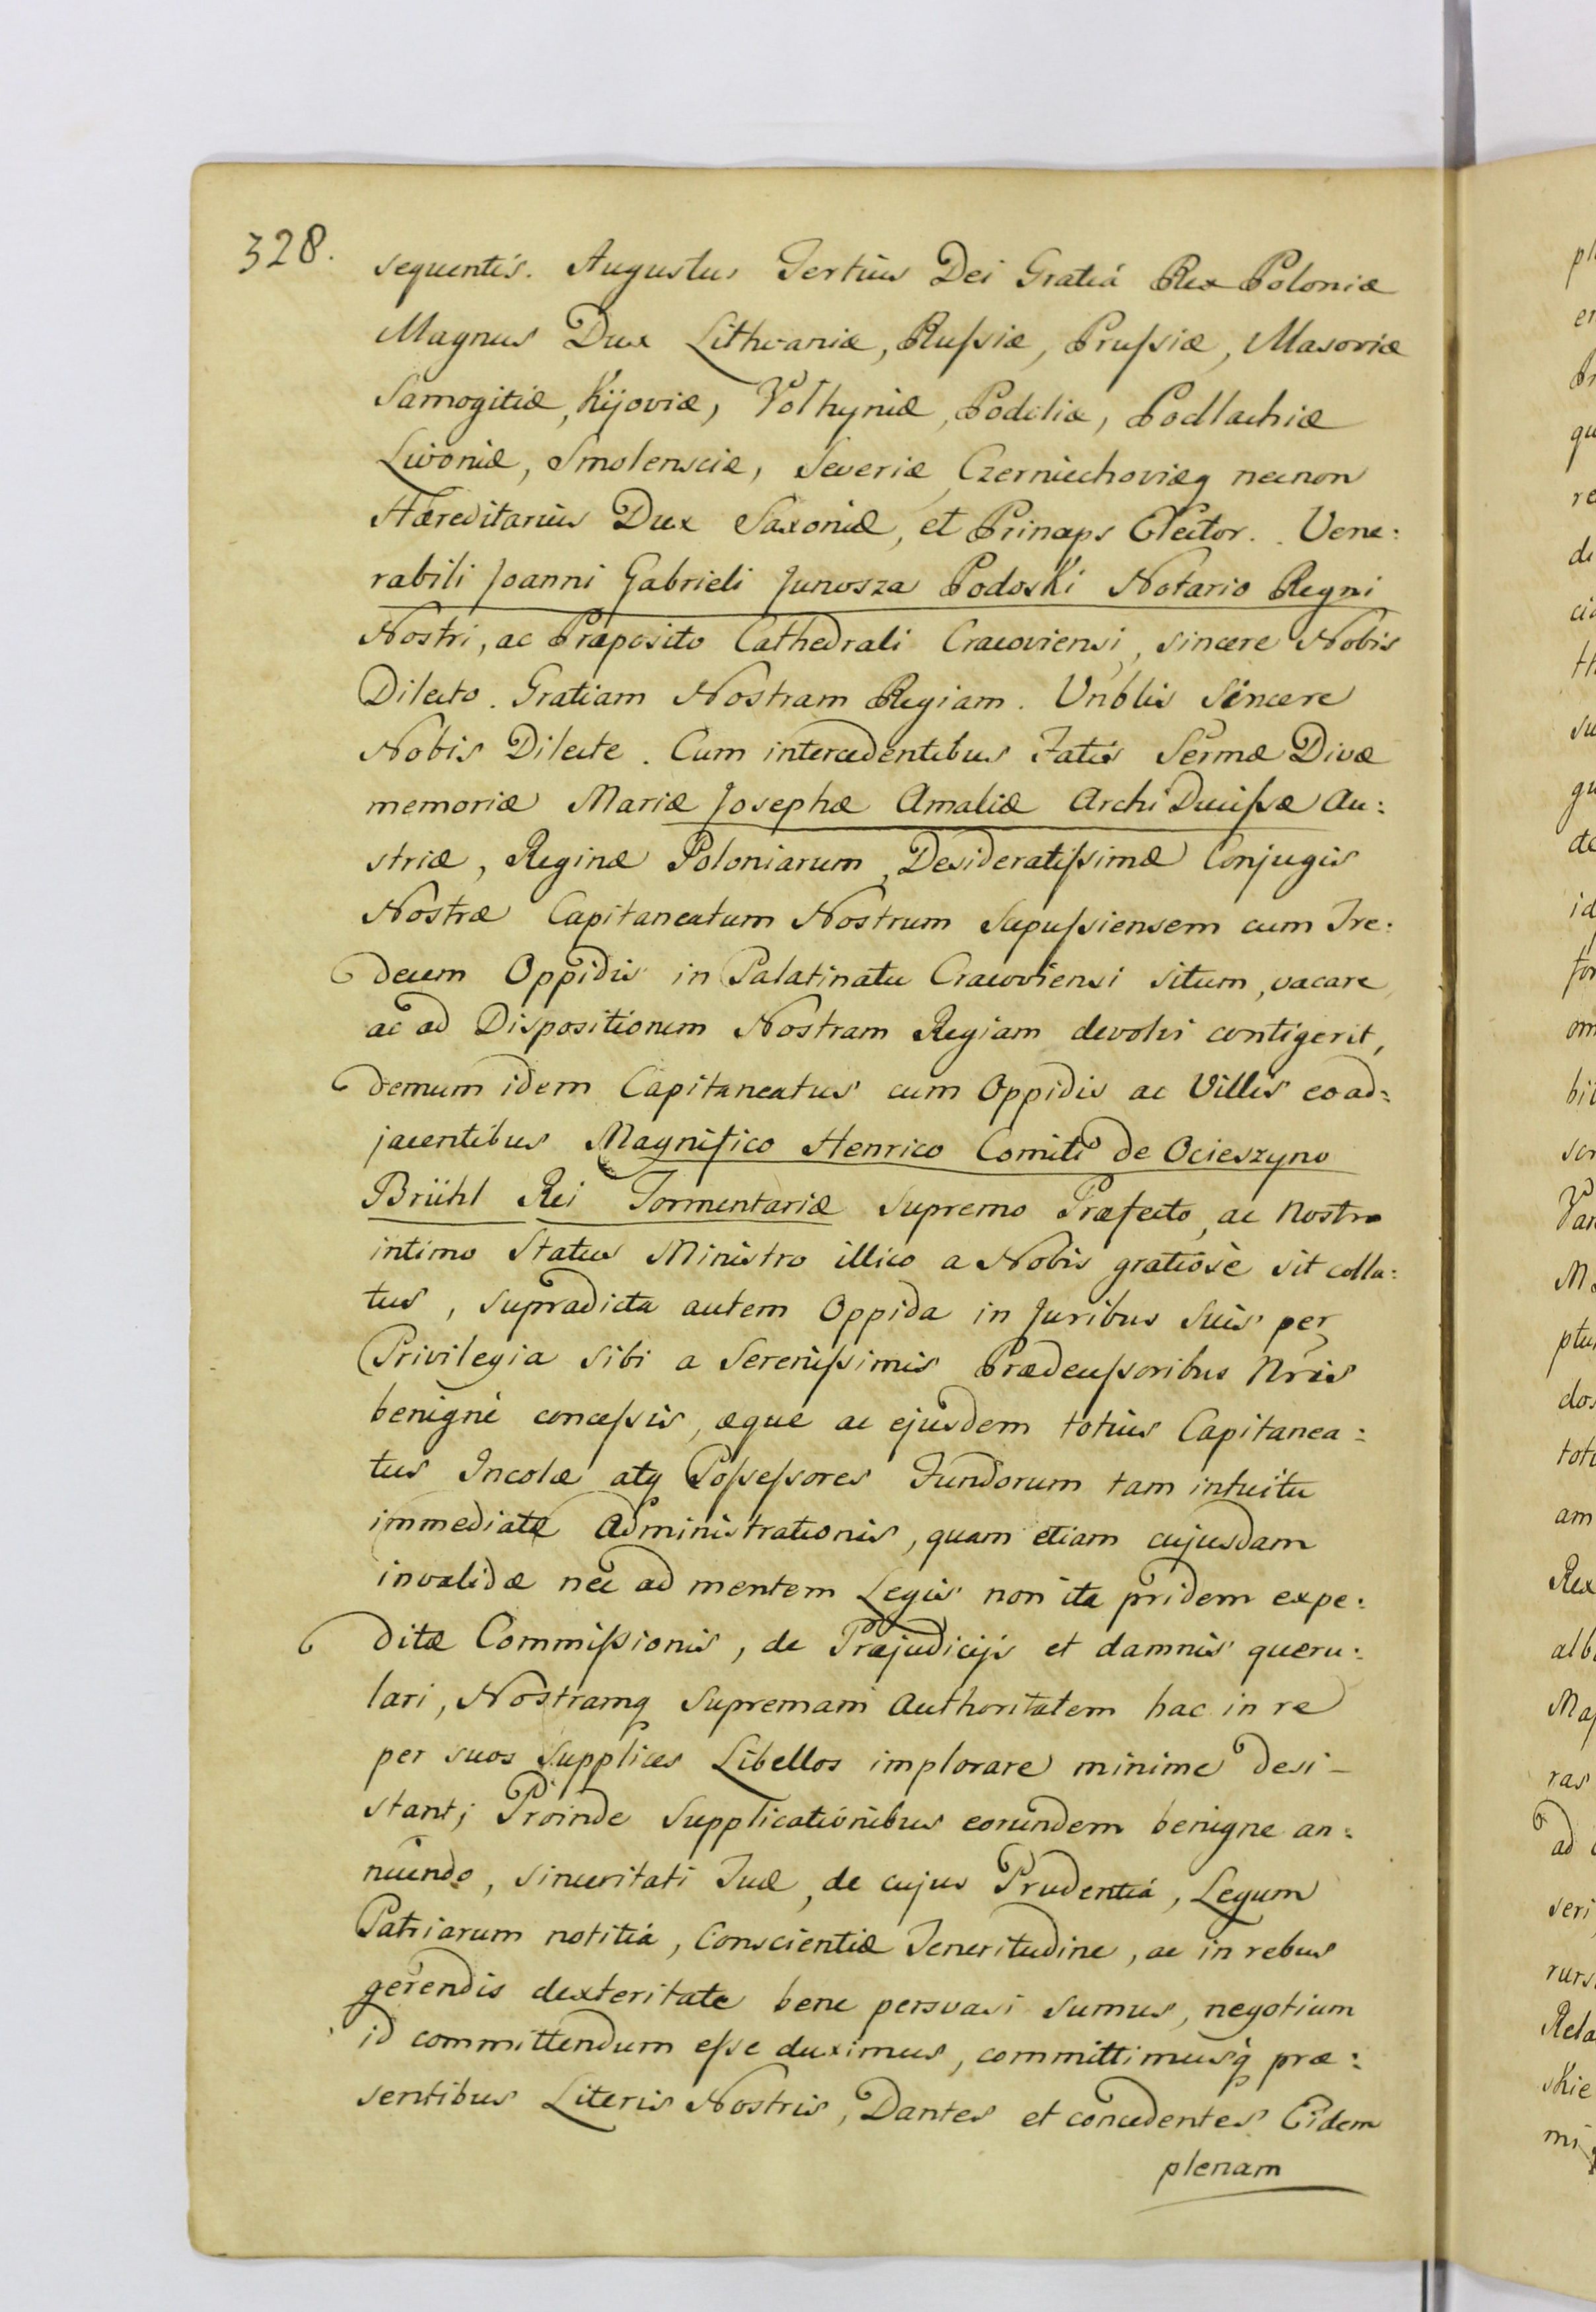 328.
sequentis. Augustus Tertius Dei Gratiá Rex Poloniæ
Magnus Dux Lithvaniæ, Rußiæ, Prußiæ, Masoviæ
Samogitiæ, Kijoviæ, Volhyniæ, Podoliæ, Podlachiæ
Livoniæ, Smolensciæ, Severiæ, Czerniechoviæq necnon
Hæreditarius Dux Saxoniæ, et Princeps Elector. Vene:
rabili Joanni Gabrieli Junosza Podoski Notario Regni
Nostri, ac Præposito Cathedrali Cracoviensi, sincere Nobis
Dilecto. Gratiam Nostram Regiam. Vnblis Sincere
Nobis Dilecte. Cum intercedentibus Fatis Sermæ Divæ
memoriæ Mariæ Josephæ Amaliæ Archi Ducißæ Au:
striæ, Reginæ Poloniarum, Desideratißimæ Conjugis
Nostræ Capitaneatum Nostrum Scepußiensem cum Tre:
decem Oppidis in Palatinatu Cracoviensi situm, vacare
ac ad Dispositionem Nostram Regiam devolvi contigerit,
demum idem Capitaneatus cum Oppidis ac Villis eo ad:
jacentibus Magnifico Henrico Comiti de Ocieszyno
Brühl Rei Tormentariæ Supremo Præfecto, ac Nostro
intimo Status Ministro illico a Nobis gratiosè sit colla:
tus, supradicta autem Oppida in Juribus suis per
Privilegia sibi a Serenißimis Prædeceßoribus Nris
benignè conceßis, æque ac ejusdem totius Capitanea:
tus Incolæ atq Poßeßores Fundorum tam intuitu
immediatæ Administrationis, quam etiam cujusdam
invalidæ nec ad mentem Legis non ita pridem expe:
ditæ Commißionis, de Præjudicijs et damnis queru:
lari, Nostramq Supremam Authoritatem hac in re
per suos Supplices Libellos implorare minime desi-
stant; Proinde Supplicationibus eorundem benigne an:
nuendo, sinceritati Tuæ, de cujus Prudentiá, Legum
Patriarum notitiá, Conscientiæ Teneritudine, ac in rebus
gerendis dexteritate bene persvasi sumus, negotium
id committendum eße duximus, committimusq præ:
sentibus Literis Nostris, Dantes et concedentes Eidem
plenam